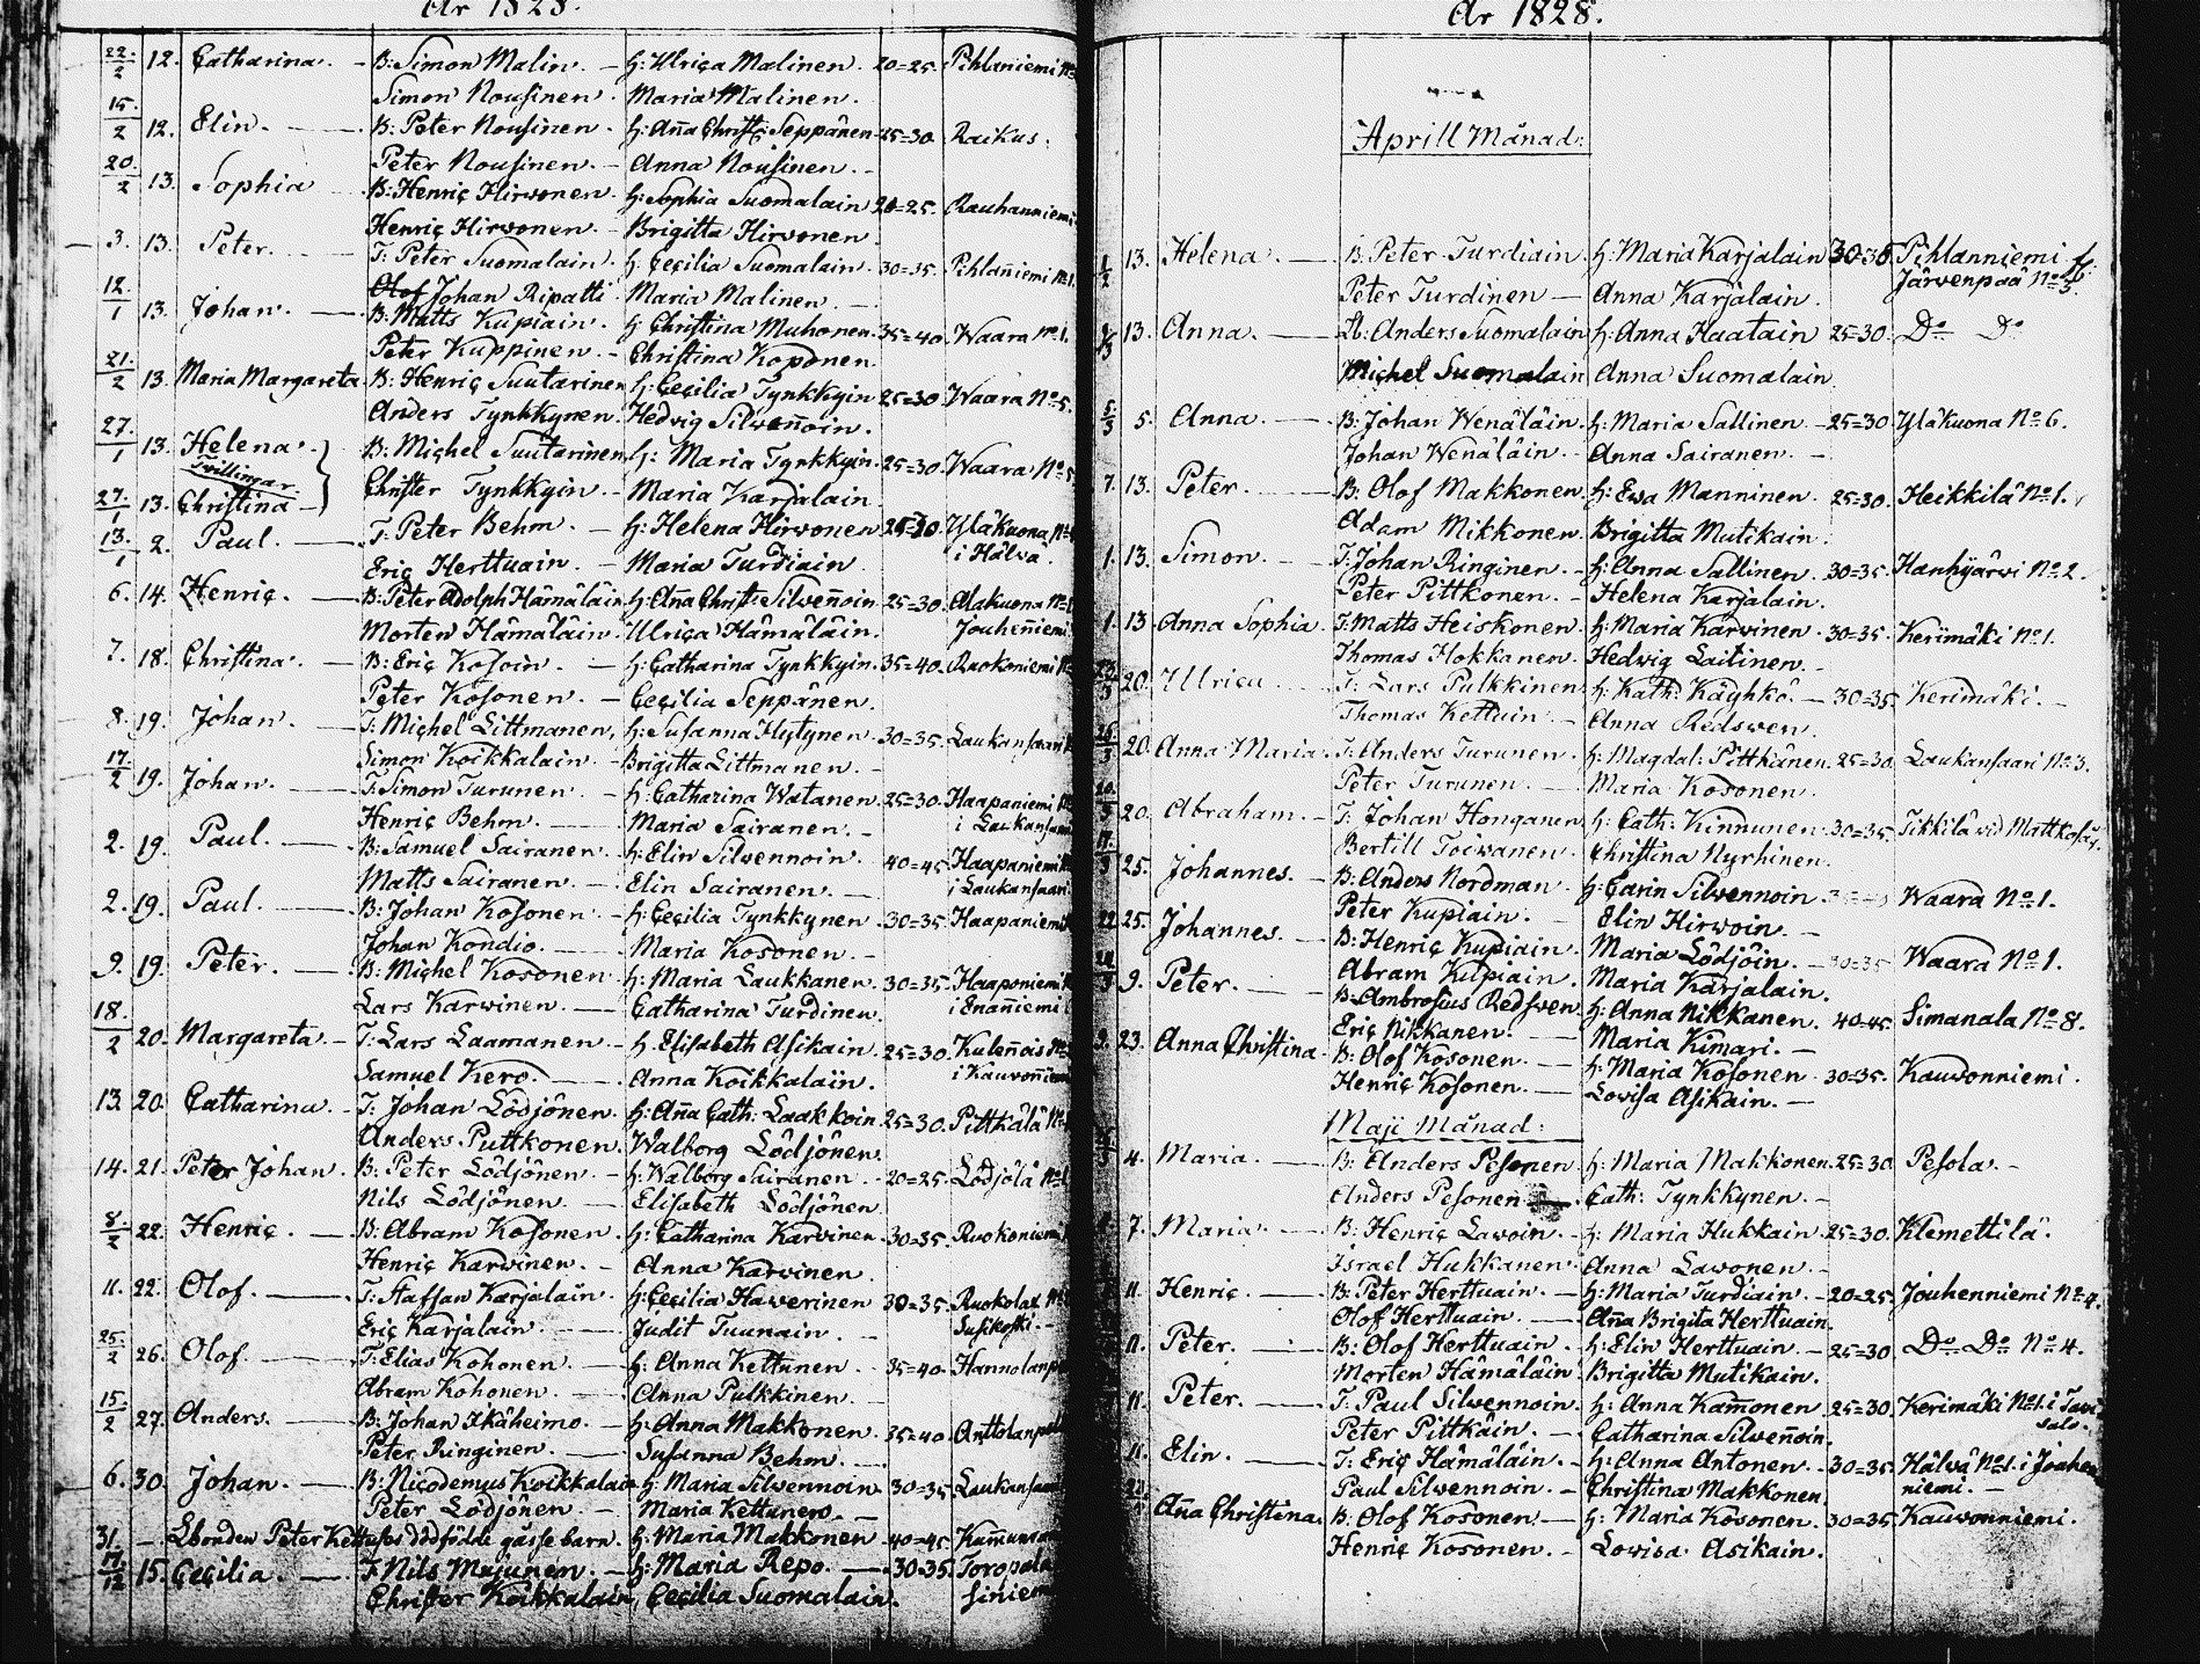 År 1828.
22/2 12. Catharina. - B: Simon Malin. - H: Ulrica Malinen. 20=25. Pihlaniemi No
Simon Nousinen. Maria Malinen.
15/2 12. Elin. - B: Peter Nousinen. H: Anna Christ: Seppänen 25=30 Raikus.
Peter Nousinen. - Anna Nousinen. -
20/2 13. Sophia B: Henric Hirvonen. H: Sophia Suomalain 20=25. Rauhanniemi
Henric Hirvonen. - Brigitta Hirvonen
3. 13. Peter. T: Peter Suomalain. H: Cecilia Suomalain. 30=35. Pihlanniemi No 1.
Olof Johan Ripatti Maria Malinen. -
12/1 13. Johan. - B: Matts Kupiain. H: Christina Muhonen. 35=40. Waara No 1.
Peter Kuppinen. - Christina Koponen.
21/2 13. Maria Margareta. B: Henric Suutarinen H: Cecilia Tynkkyin 25=30. Waara No 5.
Anders Tynkkynen. Hedvig Silwennoin.
27/1 13. Helena. B: Michel Suutarinen H: Maria Tynkkyin. 25=30. Waara No 5
Tvillingar.
27/1 13. Christina - Christer Tynkkyin. - Maria Karjalain.
13/1 2. Paul. - T: Peter Behm. - H: Helena Hirvonen 25=30 Yläkuona No
Eric Herttuain. - Maria Turdiain. i Hälvä.
6. 14. Henric. - B: Peter Adolph Hämäläin H: Anna Christ: Silvennoin 25=30. Alakuona No
Morten Hämäläin. Ulrica Hämäläin. Jouhenniemi
7. 18. Christina. - B: Eric Kosoin. - H: Catharina Tynkkyin. 35=40. Ruokoniemi No
Peter Kosonen. - Cecilia Seppänen.
8. 19. Johan. - T: Michel Littmanen, H: Susanna Hytynen 30=35. Laukansaari
Simon Koikkalain. - Brigitta Littmanen. -
17/2 19. Johan. - T: Simon Turunen. - H: Catharina Watanen. 25=30. Haapaniemi No
Henric Behm. - Maria Sairanen. - i Laukansaari
2. 19. Paul. - B: Samuel Sairanen. H: Elin Silvennoin. 40=45. Haapaniemi
Matts Sairanen. - Elin Sairanen. - i Laukansaari
2. 19. Paul. - B: Johan Kosonen. - H: Cecilia Tynkkynen. 30=35. Haapaniemi
Johan Kondio. - Maria Kosonen. -
9. 19. Peter. - B: Michel Kosonen. H: Maria Laukkanen. 30=35. Haaponiemi
Lars Karvinen. - Catharina Turdinen. i Enanniemi
18/2 20. Margareta. - T: Lars Laamanen. - H. Elisabeth Asikain. 25=30. Kulennois No
Samuel Kero. - Anna Koikkalain. i Kauvonniemi
13. 20. Catharina. - T: Johan Lödjönen. H: Anna Cath: Laakkoin 25=30. Pittkälä No
Anders Puttkonen. Walborg Lödjönen.
14. 21. Peter Johan. B: Peter Lödjönen. - H: Walborg Sairanen. - 20=25. Lödjölä No 1
Nils Lödjönen. - Elisabeth Lödjönen.
8/2 22. Henric. - B: Abram Kosonen. H: Catharina Karvinen. 30=35. Ruokoniemi
Henric Karvinen. - Anna Karvinen.
11. 22. Olof. - T: Staffan Karjalain. H: Cecilia Haverinen 30=35. Ruokolax No
Eric Karjalain. - Judit Tuunain. - Susikoski. -
25/2 26. Olof. - T: Elias Kohonen. - H: Anna Kettunen. 35=40. Hannolanp
Abram Kohonen. - Anna Pulkkinen. -
15/2 27. Anders. - B: Johan Ikäheimo. - H: Anna Makkonen. 35=40. Anttolan
Peter Ringinen. - Susanna Behm. -
6. 30. Johan. - B: Nicodemus Koikkalain H: Maria Silvennoin 30=35 Laukansaari
Peter Lödjönen. - Maria Kettunen. -
31. - Lbonden Peter Kettuses dödfödde gåsse barn. H: Maria Makkonen 40=45.
17/12 15. Cecilia. - T: Nils Mujunen. - H: Maria Repo. - 30=35. Toropala
Christer Koikkalain, Cecilia Suomalain.
År 1828.
Aprill Månad:
1/2 13. Helena. - B: Peter Turdiain. H: Maria Karjalain 30=35. Pihlanniemi f.
Peter Turdinen - Anna Karjalain. Järvenpää No 5.
13. Anna. - Lb: Anders Suomalain H: Anna Haatain 25=30. Do Do
Michel Suomalain Anna Suomalain.
5/3 5. Anna. - B: Johan Wenäläin. H: Maria Sallinen. - 25=30. Yläkuona No 6.
Johan Wenäläin. - Anna Sairanen. -
7. 13. Peter. - B: Olof Makkonen. H: Ewa Manninen. 25=30. Heikkilä No 1.
Adam Mikkonen. Brigitta Mutikain.
1. 13. Simon. - T: Johan Ringinen. - H: Anna Sallinen. 30=35. Hanhijärvi No 2.
Peter Pittkonen. - Helena Karjalain.
1. 13 Anna Sophia. T: Matts Heiskonen. H: Maria Karvinen. 30=35. Kerimäki No 1.
Thomas Hokkanen. Hedwig Laitinen. -
20. Ulrica. T: Lars Pulkkinen H: Kath: Käyhkö. - 30=35. Kerimäki. -
Thomas Kettuin. - Anna Redsven.
20. Anna Maria. T: Anders Turunen. H: Magdal: Pittkänen. 25=30. Laukansaari No 3.
Peter Turunen. - Maria Kosonen.
20. Abraham. - T: Johan Honganen H: Cath: Kinnunen. 30=35. Tikkilä vid
Bertill Toivanen. Christina Nyrhinen.
25. Johannes. - B: Anders Nordman. H: Carin Silvennoin. Waara No 1.
Peter Kupiain. - Elin Hirvoin. -
22 25. Johannes. - B: Henric Kupiain. Maria Lödjöin. - 30=35 Waara No 1.
Abram Kupiain. Maria Karjalain.
9. Peter. - B: Ambrosius Redsven H: Anna Nikkanen. 40=45. Simanala No 8.
Eric Nikkanen. - Maria Kimari. -
9. 23. Anna Christina. B: Olof Kosonen. - H: Maria Kosonen. 30=35. Kauvonniemi.
Henric Kosonen. - Lovisa Asikain. -
Maji Månad:
4. Maria. - B: Anders Pesonen H: Maria Makkonen. 25=30 Pesola. -
Anders Pesonen. Cath: Tynkkynen. -
7. Maria. - B: Henric Lavoin. - H: Maria Hukkain 25=30. Klemettilä.
Israel Hukkanen. Anna Lavonen. -
11. Henric. - B: Peter Herttuain. - H: Maria Turdiain. - 20=25. Jouhenniemi No 4.
Olof Herttuain. - Anna Brigita Herttuain.
11. Peter. - B: Olof Herttuain. - H: Elin Herttuain. - 25=30 Do Do No 4.
Morten Hämäläin. Brigitta Mutikain.
11. Peter. - T: Paul Silvennoin. H: Anna Kammonen. 25=30. Kerimäki No 1. i Tavi
Peter Pittkäin. - Catharina Silvennoin. salo.
11. Elin. - T: Eric Hämäläin. - H: Anna Antonen. - 30=35. Hälvä No 1. i Jouhen
Paul Silvennoin. - Christina Makkonen. niemi. -
Anna Christina. B: Olof Kosonen. - H: Maria Kosonen. 30=35. Kauvonniemi.
Henric Kosonen. - Lovisa Asikain.